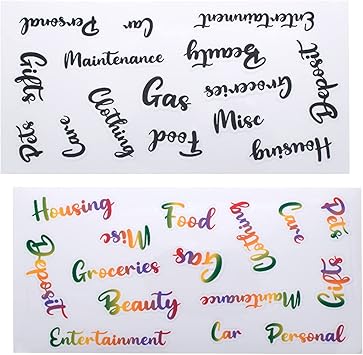 Personal
Car
Entertainment
Gifts
Maintenance
Beauty
Deposit
Clothing
Gas
Groceries
Pets
Care
Food
Misc
Housing
Housing
Food
Clothing
Care
Pets
Deposit
Misc
Gas
Groceries
Gifts
Beauty
Maintenance
Entertainment
Car
Personal